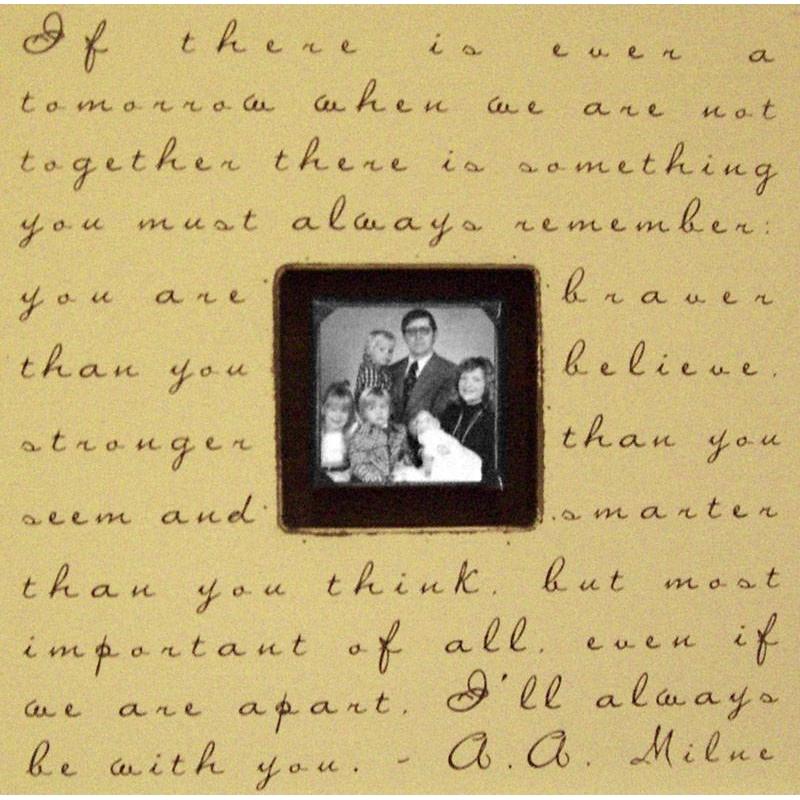 If there is ever a
tomorrow when we are not
together there is something
you must always remember:
you are braver
than you believe.
stronger than you
seem and .smarter
than you think. but most
important of all. even if
we are apart. I'll always
be with you. - A.A. Milne